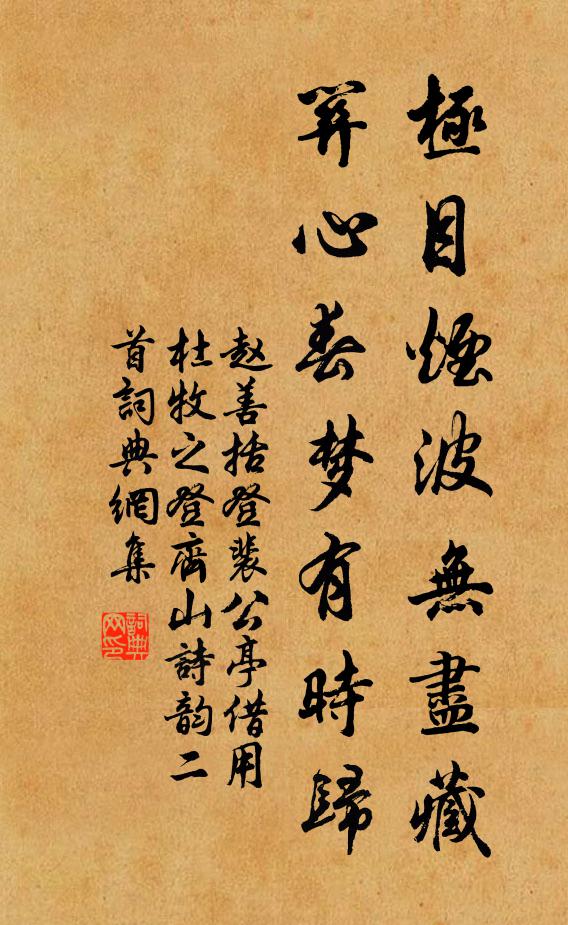 極目煙波無盡藏
心春梦有時歸
赵善括登裴公亭借用
杜牧之登齊山詩韵二
首詞典網集
詞典
网印